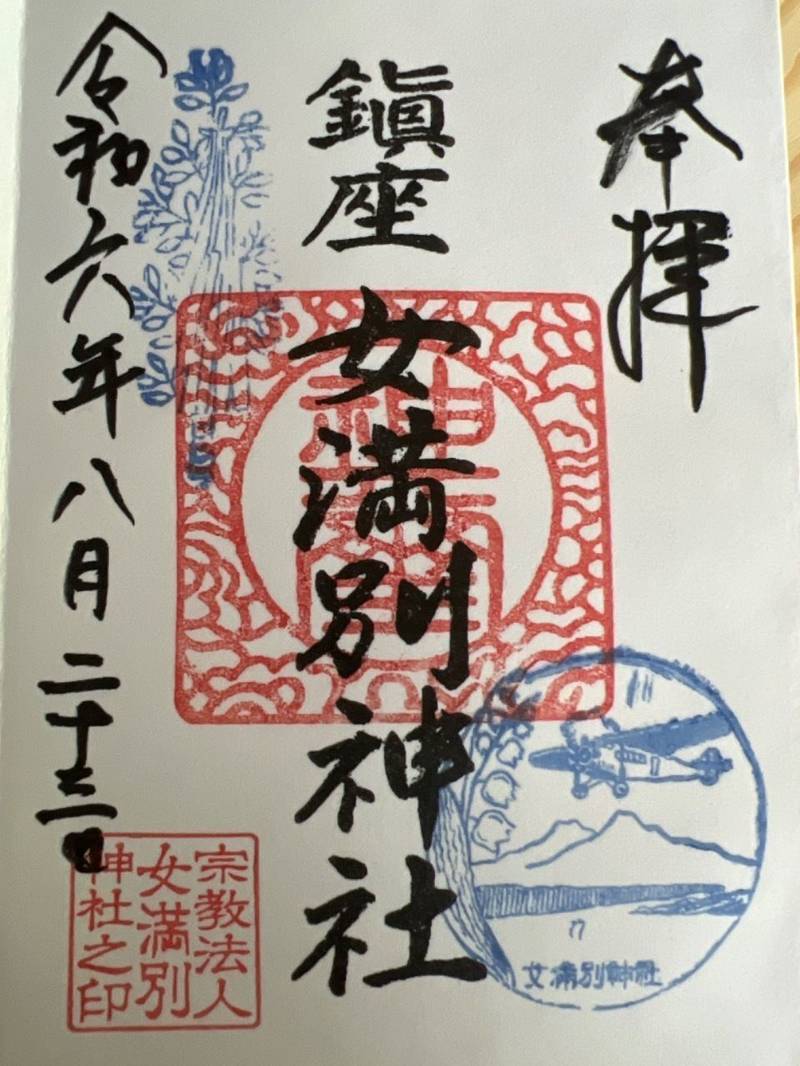 奉拝
鎭座 女満別神社
令和六年八月二十三日
宗教法人
女満別
神社之印
女満別神社